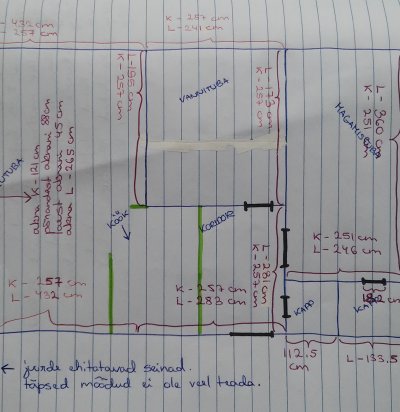 - 432 cm
- 257 cm
K - 257 cm
L - 241 cm
L - 195 cm
K - 257 cm
VANNITUBA
L - 173 cm
K - 257 cm
L - 360 cm
K - 251 cm
MAGAMISTUBA
UTUBA
akna K - 121 cm
põrandast aknani 88 cm
laest aknani 45 cm
akna L - 265 cm
KÖÖK
KORIDOR
K - 251 cm
L - 246 cm
L - 281 cm
K - 257 cm
K - 257 cm
L - 432 cm
K - 257 cm
L - 283 cm
KAPP
KAPP
112.5
cm
L - 133.5
← juurde ehitatavad seinad.
täpsed mõõdud ei ole veel teada.